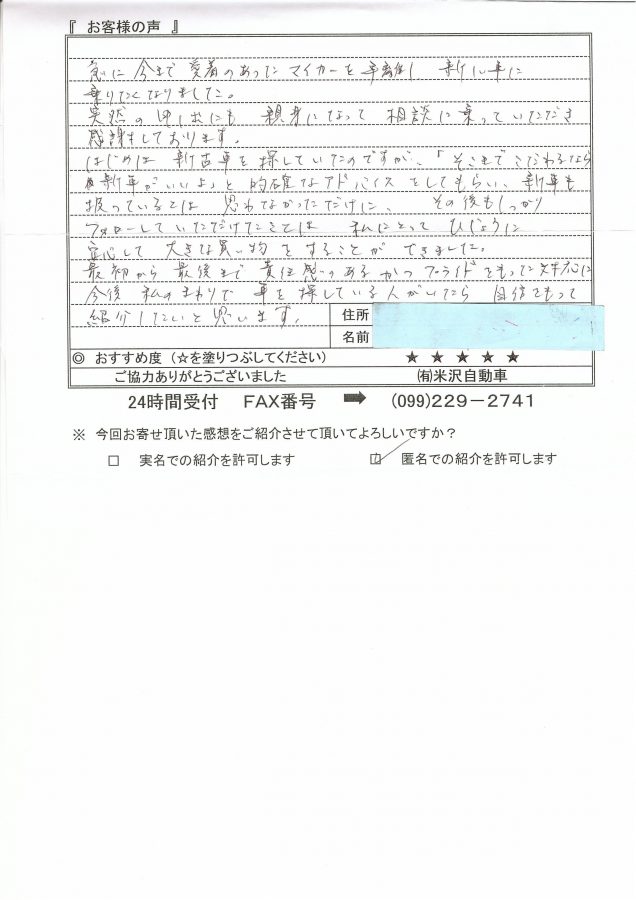 『 お客様の声 』
急に 今まで 愛着のあった マイカーを 手離し 新しい車に
乗りたくなりました。
突然の申し出にも 親身になって 相談に乗っていただき
感謝しております。
はじめは 新古車を探していたのですが、「そこまでこだわるなら
新車がいいよ」と 的確なアドバイスをしてもらい、新車も
扱っているとは 思わなかっただけに、 その後もしっかり
フォローしていただけたことは 私にとって ひじょうに
安心して 大きな買い物をすることが できました。
最初から 最後まで 責任感のあるかつプライドをもった対応に
今後 私のまわりで 車を探している人がいたら 自信をもって
紹介したいと思います。
住所
名前
◎ おすすめ度(☆を塗りつぶしてください) ★ ★ ★ ★ ★
ご協力ありがとうございました ㈲米沢自動車
24時間受付 FAX番号 ➡ (099)229-2741
※ 今回お寄せ頂いた感想をご紹介させて頂いてよろしいですか?
□ 実名での紹介を許可します ☑ 匿名での紹介を許可します